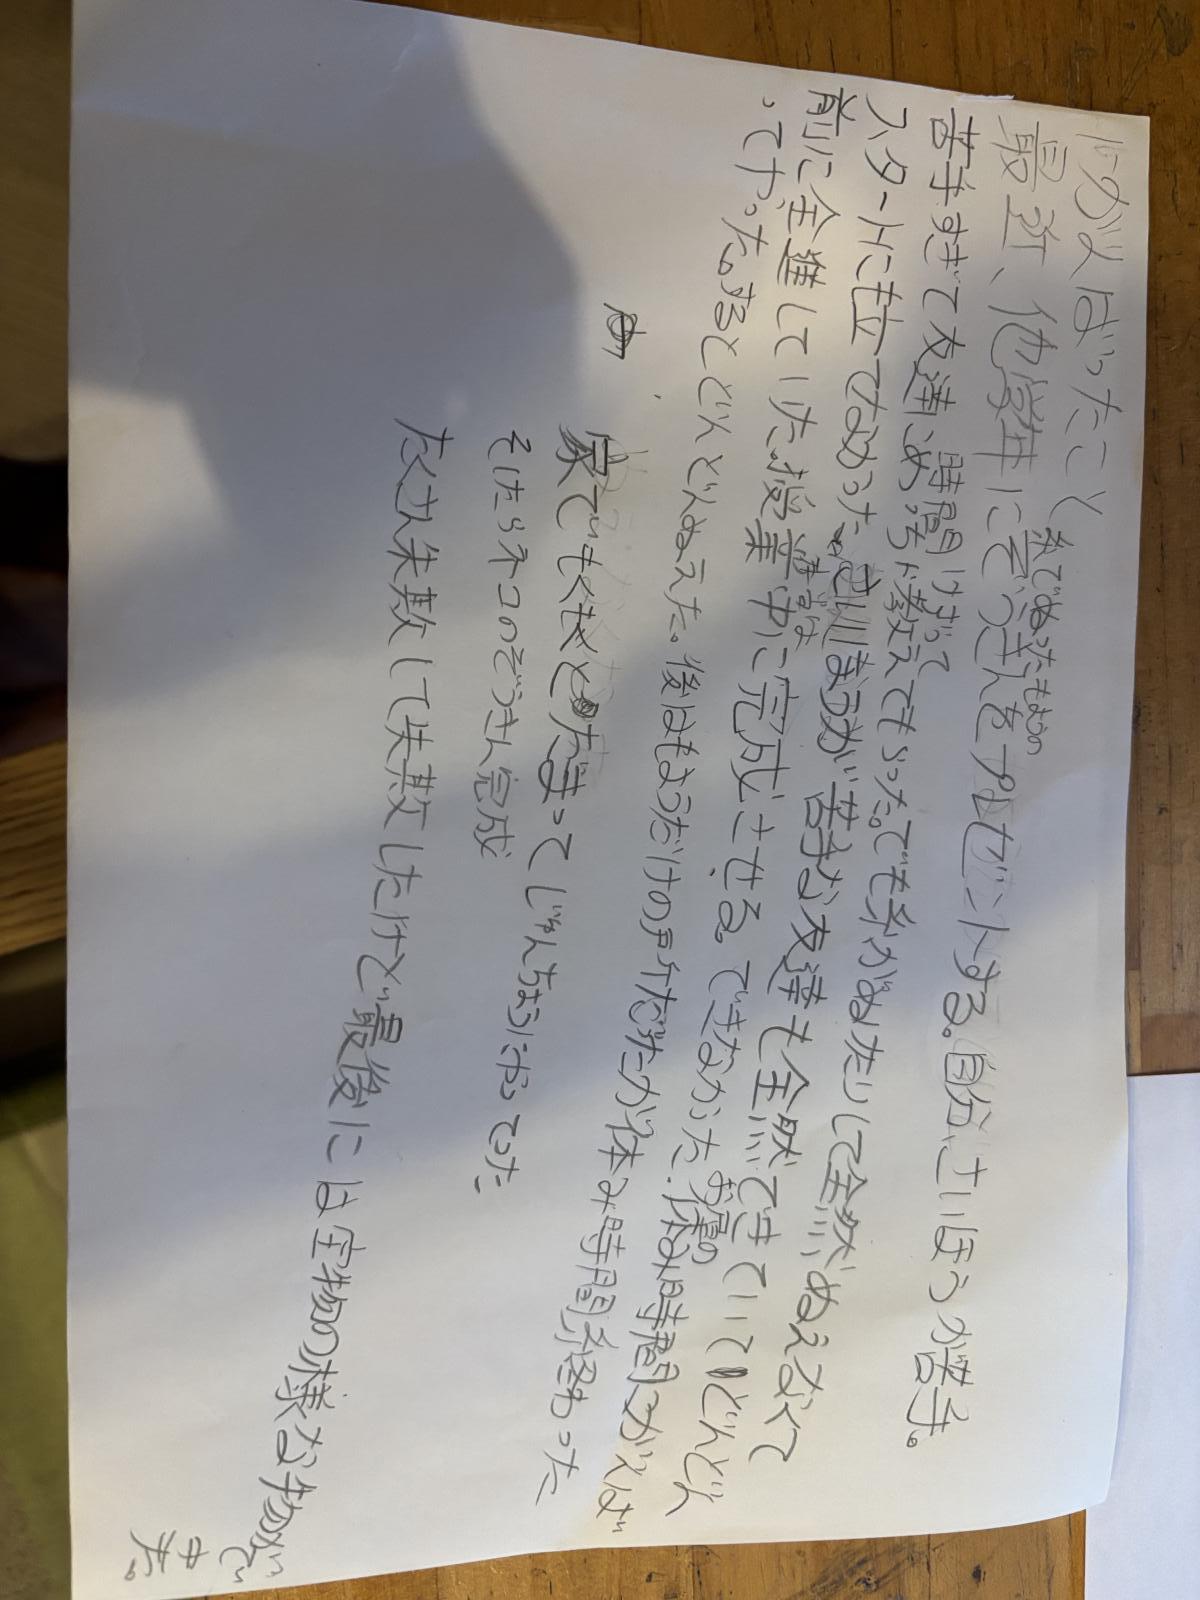 がんばったこと
糸でぬったもようの
最近、他学年にぞうきんをプレゼントする。自分、さいほうが苦手。
時間けずって
苦手すぎて友達にめっちゃ教えてもらった。でも糸がぬけたりして全然ぬえなくて
スタートに立てなかった。さいほうが苦手な友達も全然できていてどんどん
まずは
前に全進していた。授業中に完成させる。できなかった。休み時間がんば
お昼の
ってやった。するとどんどんぬえた。後はもようだけの所だったが休み時間終わった
家でもくもくとだまってじゅんちょうにやってった
そしたらネコのぞうきん完成
たくさん失敗して失敗したけど最後には宝物の様な物がで
きた。